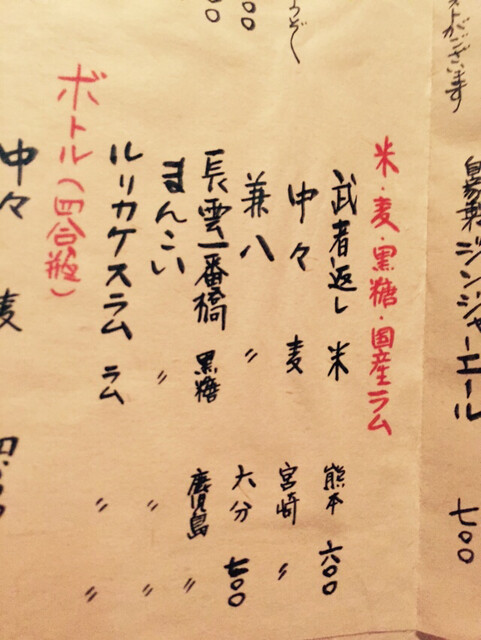 ストがございます
自家製ジンジャーエール 七〇〇
米・麦・黒糖・国産ラム
武者返し 米 熊本 六〇〇
中々 麦 宮崎 〃
兼八 〃 大分 七〇〇
長雲一番橋 黒糖 鹿児島 〃
まんこい 〃 〃 〃
ルリカケスラム ラム 〃 〃
ボトル(四合瓶)
中々 麦